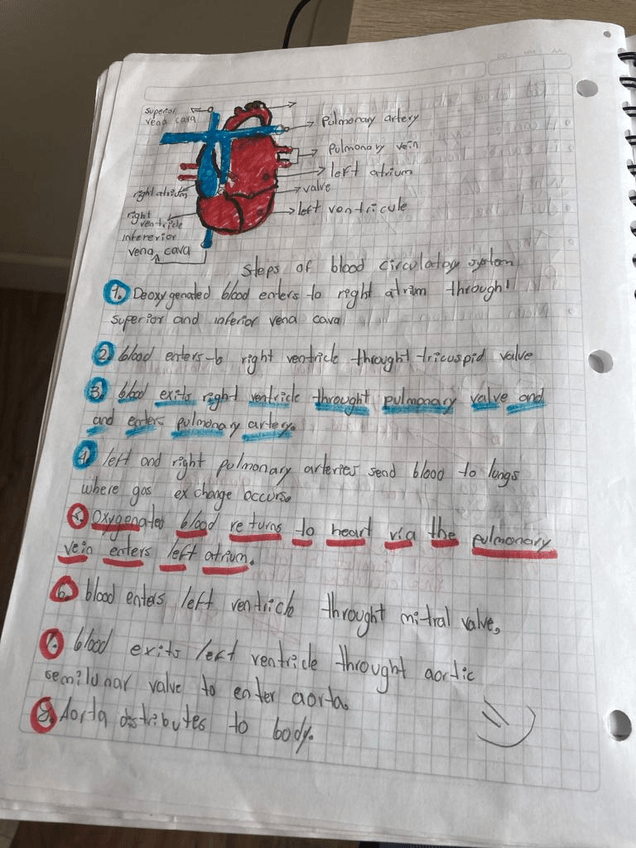 superior
vena cava
Pulmonary artery
Pulmonary vein
left atrium
right atrium
valve
right
ventricle
left ventricule
infererior
vena cava
Steps of blood circulatory system
1. Deoxygenated blood enters to right atrium through
superior and inferior vena cava
2. blood enters to right ventricle throught tricuspid valve
3. blood exits right ventricle throught pulmonary valve and
and enters pulmonary artery.
4. left and right pulmonary arteries send blood to lungs
where gas exchange occurs.
5. Oxygenated blood returns to heart via the pulmonary
vein enters left atrium.
6. blood enters left ventricle throught mitral valve,
7. blood exits left ventricle throught aortic
semilunar valve to enter aorta.
8. Aorta distributes to body.